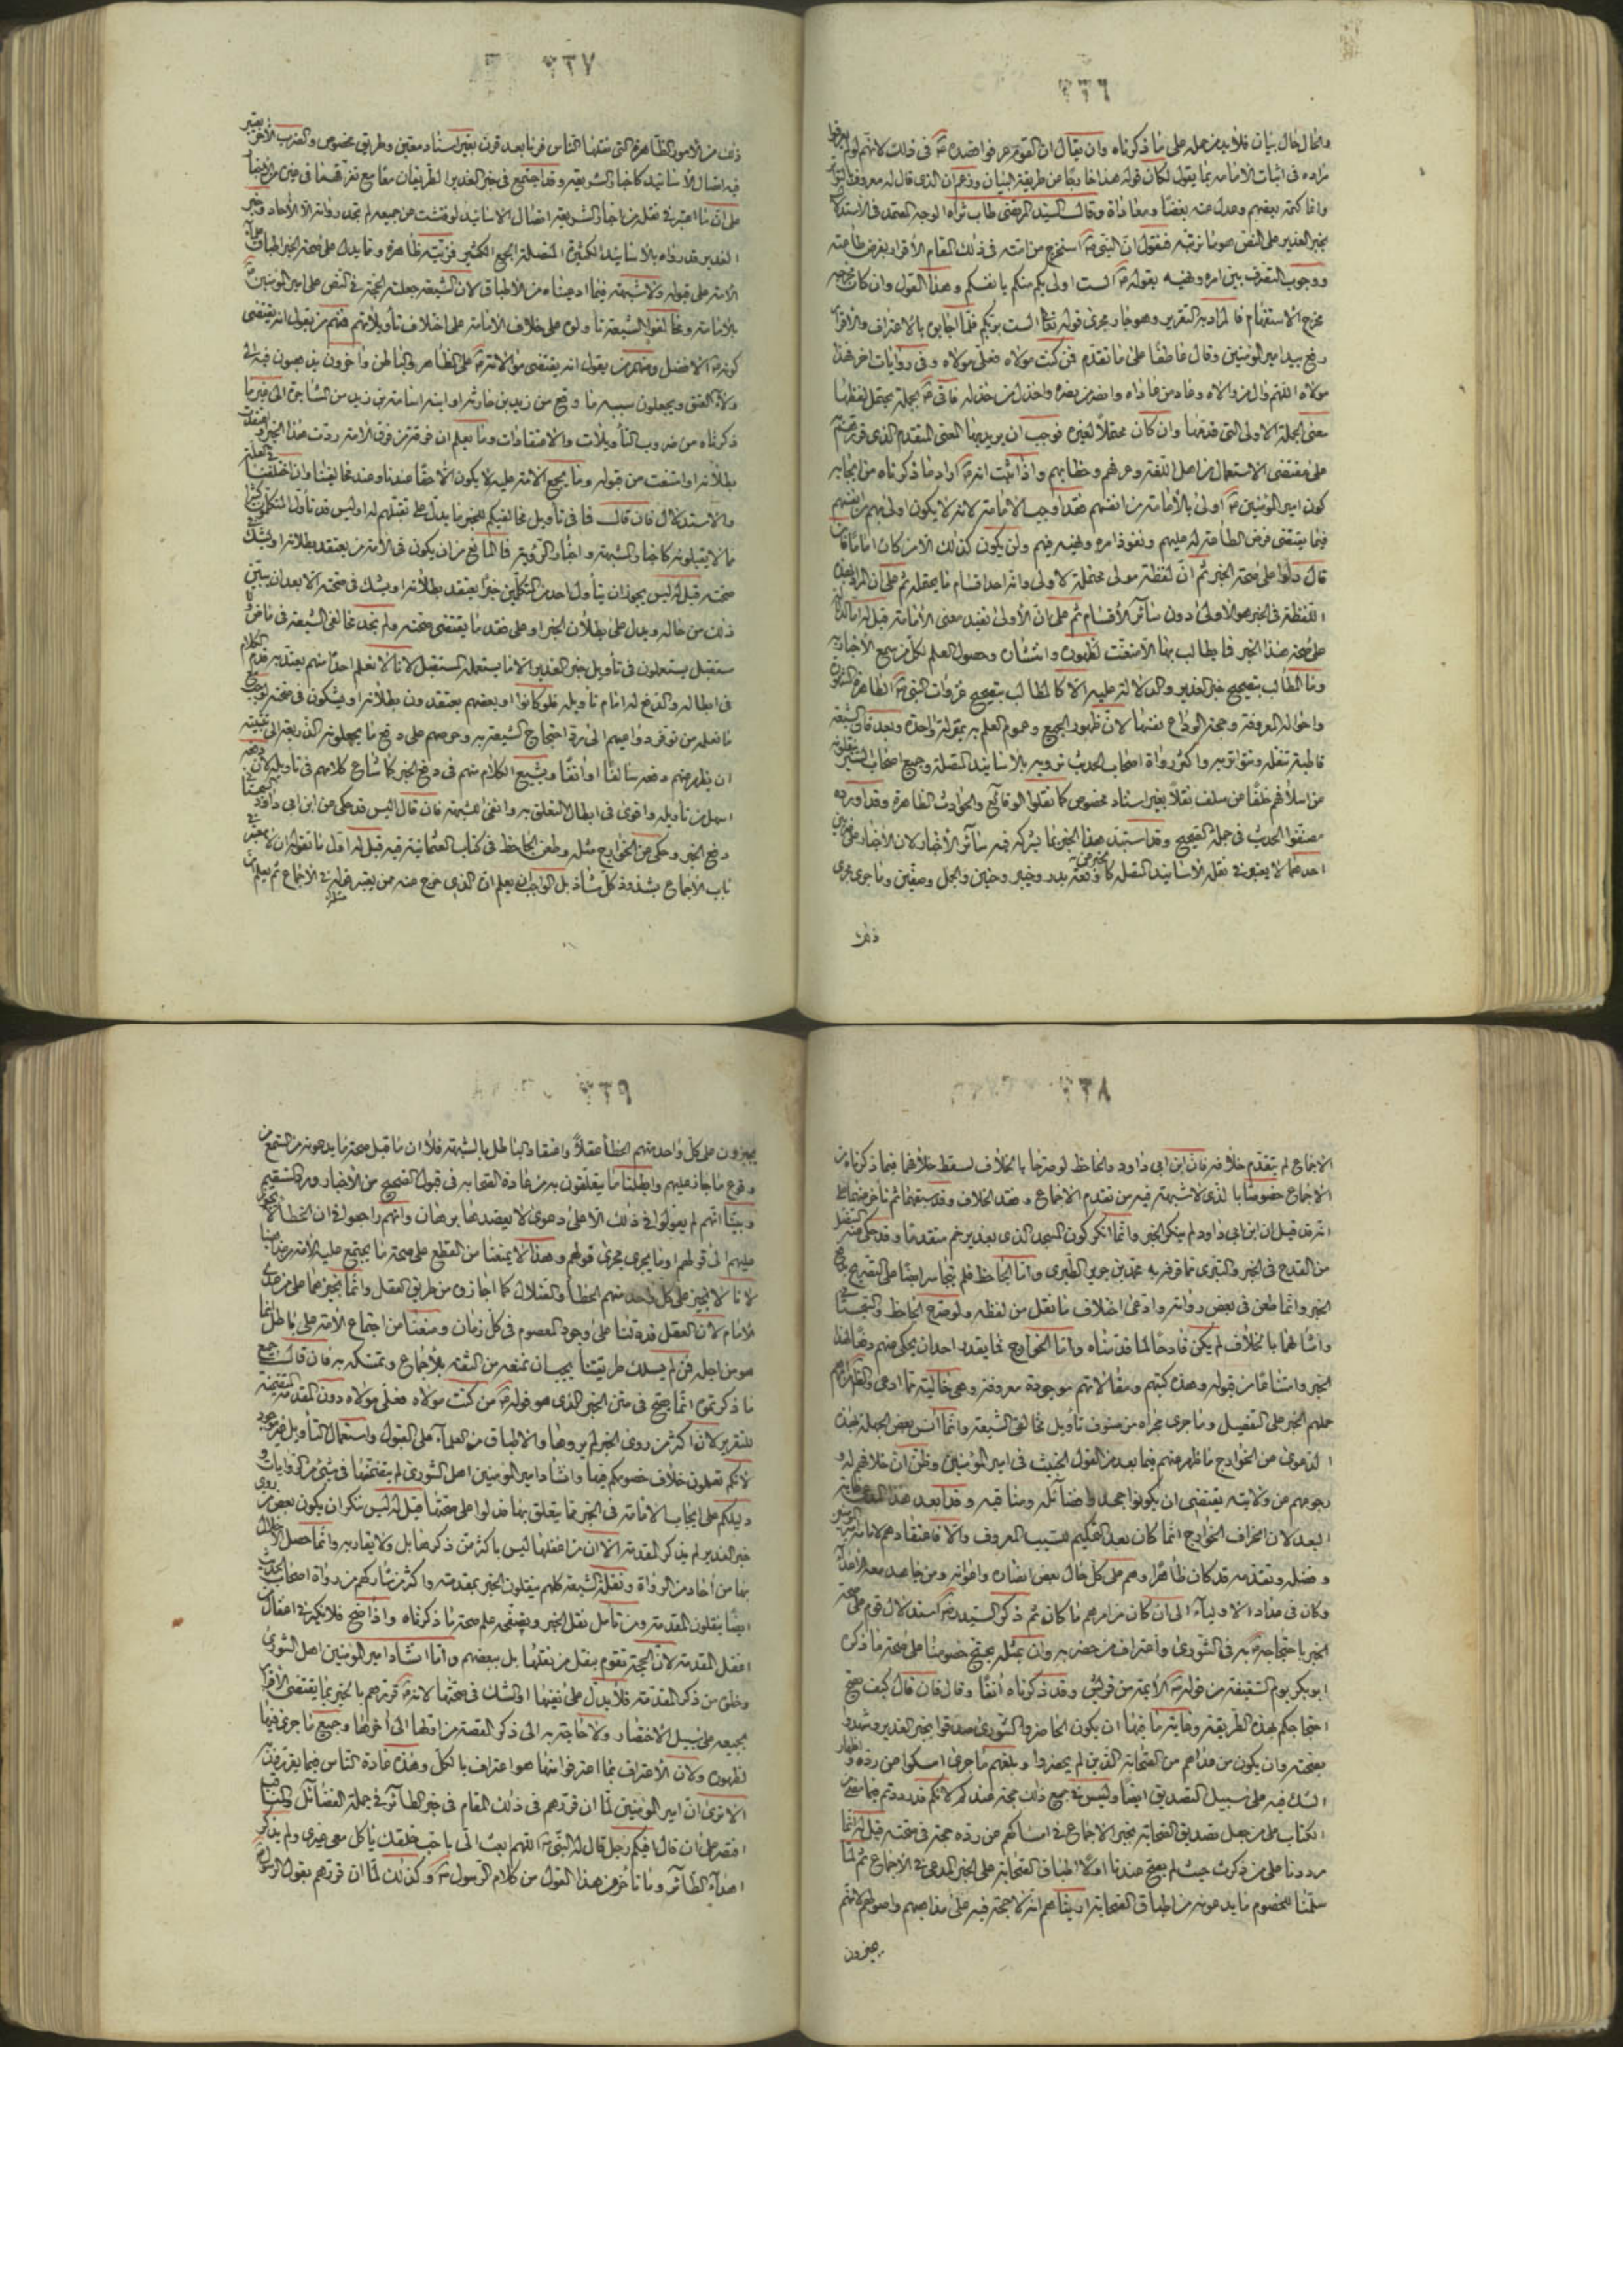 ٣٣٦
والحال حال بيان فلا بد من حمله على ما ذكرناه وان يقال ان القوم عرفوا قصده ص في ذلك لانهم لو لم يعرفوا
مراده في اثبات الامامة بما يقول لكان قوله هذا خارجا عن طريقة البيان وزعم ان الذي قال له معروف بالتواتر
وانما كتمه بعضهم وعدل عنه بغضا ومعاداة وقال السيد المرتضى طاب ثراه الوجه المعتمد في الاستدلال
بخبر الغدير على النص هو ما نرتبه فنقول ان النبي ص استخرج من امته في ذلك المقام الاقرار بفرض طاعته
ووجوب التصرف بين امره ونهيه بقوله ص الست اولى بكم منكم بانفسكم وهذا القول وان كان مخرجه
مخرج الاستفهام فالمراد به التقرير وهو جار مجرى قوله تعالى الست بربكم فلما اجابوه بالاعتراف والاقرار
رفع بيد امير المؤمنين وقال عاطفا على ما تقدم فمن كنت مولاه فعلي مولاه وفي روايات اخر فهذا
مولاه اللهم وال من والاه وعاد من عاداه وانصر من نصره واخذل من خذله فاتى ص بجملة يحتمل لفظها
معنى الجملة الاولى التي قدمها وان كان محتملا لغيره فوجب ان يريد بها المعنى المتقدم الذي قررهم به
على مقتضى الاستعمال من اهل اللغة وعرفهم وخطابهم واذا ثبت انه ص اراد ما ذكرناه من ايجابه
كون امير المؤمنين ع اولى بالامامة من انفسهم فقد اوجب الامامة لانه لا يكون اولى بهم من انفسهم
فيما يقتضي فرض الطاعة له عليهم ونفوذ امره ونهيه فيهم ولن يكون كذلك الا من كان اماما فان
قال دلوا على صحة الخبر ثم ان لفظة مولى محتملة لاولى وانه احد اقسام ما يحتمله ثم على ان المراد بهذه
اللفظة في الخبر هو الاولى دون سائر الاقسام ثم على ان الاولى تفيد معنى الامامة قيل له اما الدلالة
على صحة هذا الخبر فما يطالب بها الا متعنت لظهوره وانتشاره وحصول العلم لكل من سمع الاخبار به
وما المطالب بتصحيح خبر الغدير والدلالة عليه الا كالمطالب بتصحيح غزوات النبي ص الظاهرة المشهورة
واحواله المعروفة وحجة الوداع نفسها لان ظهور الجميع وعموم العلم به بمنزلة واحدة وبعد فان الشيعة
قاطبة تنقله وتتواتر به واكثر رواة اصحاب الحديث ترويه بالاسانيد المتصلة وجميع اصحاب السير ينقلونه
عن اسلافهم خلفا عن سلف نقلا بغير اسناد مخصوص كما نقلوا الوقائع والحوادث الظاهرة وقد اورده
مصنفوا الحديث في جملة الصحيح وقد استبد هذا الخبر بما لا يشركه فيه سائر الاخبار لان الاخبار على ضربين
احدهما لا يعتبر في نقله الاسانيد المتصلة كالخبر عن وقعة بدر وخيبر وحنين والجمل وصفين وما جرى مجرى
ذلك
٣٣٧
ذلك من الامور الظاهرة التي نقلها الناس قرنا بعد قرن بغير اسناد معين وطريق مخصوص والضرب الآخر يعتبر
فيه اتصال الاسانيد كاخبار الشريعة وقد اجتمع في خبر الغدير الطريقان معا مع تفرقهما في غيره من الاخبار
على ان ما اعتبر في نقله من اخبار الشريعة اتصال الاسانيد لو فتشت عن جميعه لم تجد رواته الا الآحاد وخبر
الغدير قد رواه بالاسانيد الكثيرة المتصلة الجمع الكثير فمزيته ظاهرة ومما يدل على صحة الخبر اطباق علماء
الامة على قبوله ولا شبهة فيما ادعيناه من الاطباق لان الشيعة جعلته الحجة في النص على امير المؤمنين ع
بالامامة ومخالفوا الشيعة تأولوه على خلاف الامامة على اختلاف تأويلاتهم فمنهم من يقول انه يقتضي
كونه ع الافضل ومنهم من يقول انه يقتضي موالاته ع على الظاهر والباطن وآخرون يذهبون فيه الى
ولاء العتق ويجعلون سببه ما وقع من زيد بن حارثة او ابنه اسامة بن زيد من المشاجرة الى غير ما
ذكرناه من ضروب التأويلات والاعتقادات وما يعلم ان فرقة من فرق الامة ردت هذا الخبر واعتقدت
بطلانه او امتنعت من قبوله وما يجمع الامة عليه لا يكون الا حقا عندنا وعند مخالفينا وان اختلفنا في العلة
والاستدلال فان قال فما في تأويل مخالفيكم للخبر ما يدل على تقبلهم له اوليس قد تأول المتكلمون كثيرا
مما لا يقبلونه كاخبار الشبهة واخبار الرؤية فما المانع من ان يكون في الامة من يعتقد بطلانه او يشك في
صحته قيل له ليس يجوز ان يتأول احد من المتكلمين خبرا يعتقد بطلانه او يشك في صحته الا بعد ان يبين
ذلك من حاله ويدل على بطلان الخبر او على فقد ما يقتضي صحته ولم نجد مخالفي الشيعة في ماض ولا
مستقبل يستعملون في تأويل خبر الغدير الا ما يستعمله المتقبل لانا لا نعلم احدا منهم يعتد به قدم الكلام
في ابطاله والدفع له امام تأويله فلو كانوا او بعضهم يعتقدون بطلانه او يشكون في صحته لوجب مع
ما نعلمه من توفر دواعيهم الى رد احتجاج الشيعة به وحرصهم على دفع ما يجعلونه الذريعة الى تثبيته
ان يظهر عنهم دفعه سالفا او آنفا ويشيع الكلام منهم في دفع الخبر كما شاع كلامهم في تأويله لان دفعه
اسهل من تأويله واقوى في ابطال التعلق به وانفى للشبهة فان قال اليس قد حكي عن ابن ابي داود السجستاني في
دفع الخبر وحكي عن الخوارج مثله وطعن الجاحظ في كتاب العثمانية فيه قيل له اول ما نقوله انه لا يعتبر في
باب الاجماع بشذوذ كل شاذ بل الواجب ان يعلم ان الذي خرج عنه ممن يعتبر قوله في الاجماع ثم يعلم ان
٣٣٨
الاجماع لم يتقدم خلافه فان ابن ابي داود والجاحظ لو صرحا بالخلاف لسقط خلافهما فيما ذكرناه من
الاجماع خصوصا بالذي لا شبهة فيه من تقدم الاجماع وفقد الخلاف وقد سبقهما ثم تأخر عنهما على
انه قد قيل ان ابن ابي داود لم ينكر الخبر وانما انكر كون المسجد الذي بغدير خم متقدما وقد حكي عنه التنصل
من القدح في الخبر والتبري مما قرفه به محمد بن جرير الطبري واما الجاحظ فلم يتجاسر ايضا على التصريح بدفع
الخبر وانما طعن في بعض رواته وادعى اختلاف ما نقل من لفظه ولو صرح الجاحظ والسجستاني
وامثالهما بالخلاف لم يكن قادحا لما قدمناه واما الخوارج فما يقدر احد ان يحكي عنهم دفعا لهذا
الخبر وامتناعا من قبوله وهذه كتبهم ومقالاتهم موجودة معروفة وهي خالية مما ادعي والظاهر من امرهم
حملهم الخبر على التفضيل وما جرى مجراه من صنوف تأويل مخالفي الشيعة وانما آنس بعض الجهلة بهذه
الدعوى عن الخوارج ما ظهر منهم فيما بعد من القول الخبيث في امير المؤمنين ع وظن ان خلافهم له و
رجوعهم عن ولايته يقتضي ان يكونوا جحدوا فضائله ومناقبه وقد ابعد هذا المدعي غاية
البعد لان انحراف الخوارج انما كان بعد التحكيم للسبب المعروف والا فاعتقادهم لامامة امير المؤمنين
وفضله وتقدمه قد كان ظاهرا وهم على كل حال بعض انصاره واعوانه وممن جاهد معه الاعداء
وكان في عداد الاولياء الى ان كان من امرهم ما كان ثم ذكر السيد رضي استدلال قوم على صحة
الخبر باحتجاجه ع به في الشورى واعتراف من حضر به وان بمثله يحتج خصومنا على صحة ما ذكره
ابو بكر يوم السقيفة من قوله ص الائمة من قريش وقد ذكرناه آنفا وقال فان قال كيف يصح
احتجاجكم بهذه الطريقة وغاية ما فيها ان يكون الحاضرون الشورى صدقوا بخبر الغدير وشهدوا
بصحته وان يكون من عداهم من الصحابة الذين لم يحضروا وبلغهم ما جرى امسكوا عن رده واظهار
الشك فيه على سبيل التصديق ايضا وليس في جميع ذلك حجة عندكم لانكم قد رددتم فيما مضى من
الكتاب على من جعل تصديق الصحابة بخبر الاجماع في امساكهم عن رده حجة في صحته قيل له انما
رددنا على من ذكرت حيث لم يصح عندنا اولا اطباق الصحابة على الخبر المدعى في الاجماع ثم لما
سلمنا للخصوم ما يدعونه من اطباق الصحابة اريناهم انه لا حجة فيه على مذاهبهم واصولهم لانهم
يجيزون
٣٣٩
يجيزون على كل واحد منهم الخطأ عقلا واعتقاد الباطل بالشبهة فلا امان قبل صحة ما يدعونه من السمع من
وقوع ما جاز عليهم وابطلنا ما يتعلقون به من عادة الصحابة في قبول الصحيح من الاخبار ورد السقيم
وبينا انهم لم يعولوا في ذلك الا على دعوى لا يعضدها برهان وانهم رجعوا في ان الخطأ لا يجوز
عليهم الى قولهم او ما يجري مجرى قولهم وهذا لا يمنعنا من القطع على صحة ما يجتمع عليه الامة على مذهبنا
لانا لا نجيز على كل واحد منهم الخطأ والضلال كما اجازوه من طريق العقل وانما نجيزهما على من عدا
الامام لان العقل قد دلنا على وجود المعصوم في كل زمان ومنعنا من اجتماع الامة على باطل انما
هو من اجله فمن لم يسلك طريقتنا يجب ان نمنعه من الثقة بالاجماع وتمسكه به فان قال جميع
ما ذكرتموه انما يصح في متن الخبر الذي هو قوله ص من كنت مولاه فعلي مولاه دون المقدمة المتضمنة
للتقرير لان اكثر من روى الخبر لم يروها والاطباق من العلماء على القبول واستعمال التأويل غير موجود
لانكم تعلمون خلاف خصومكم فيها وانشاد امير المؤمنين اهل الشورى لم يتضمنها في شيء من الروايات و
دليلكم على ايجاب الامامة في الخبر مما يتعلق بها فدلوا على صحتها قيل له ليس ننكر ان يكون بعض من روى
خبر الغدير لم يذكر المقدمة الا ان من اغفلها ليس باكثر ممن ذكرها بل ولا يقاربه وانما حصل الاخلال
بها من آحاد من الرواة ونقلة الشيعة كلهم ينقلون الخبر بمقدمته واكثر من شاركهم من رواة اصحاب الحديث
ايضا ينقلون المقدمة ومن تأمل نقل الخبر وتصفحه علم صحة ما ذكرناه واذا صح فلا نكير في اغفال من
اغفل المقدمة لان الحجة تقوم بنقل من نقلها بل ببعضهم واما انشاد امير المؤمنين اهل الشورى
وخلوه من ذكر المقدمة فلا يدل على نفيها او الشك في صحتها لانه ع قررهم بالخبر بما يقتضي الاقرار
بجميعه على سبيل الاختصار ولا حاجة به الى ذكر القصة من اولها الى آخرها وجميع ما جرى فيها
لظهوره ولان الاعتراف بما اعترفوا منها هو اعتراف بالكل وهذه عادة الناس فيما يقررونه
الا ترى ان امير المؤمنين لما ان قررهم في ذلك المقام في خبر الطائر في جملة الفضائل والمناقب
اقتصر على ان قال افيكم رجل قال له النبي ص اللهم ابعث الي باحب خلقك يأكل معي غيري ولم يذكر
اهداء الطائر وما تأخر من هذا القول من كلام الرسول ص وكذلك لما ان قررهم بقول الرسول ص